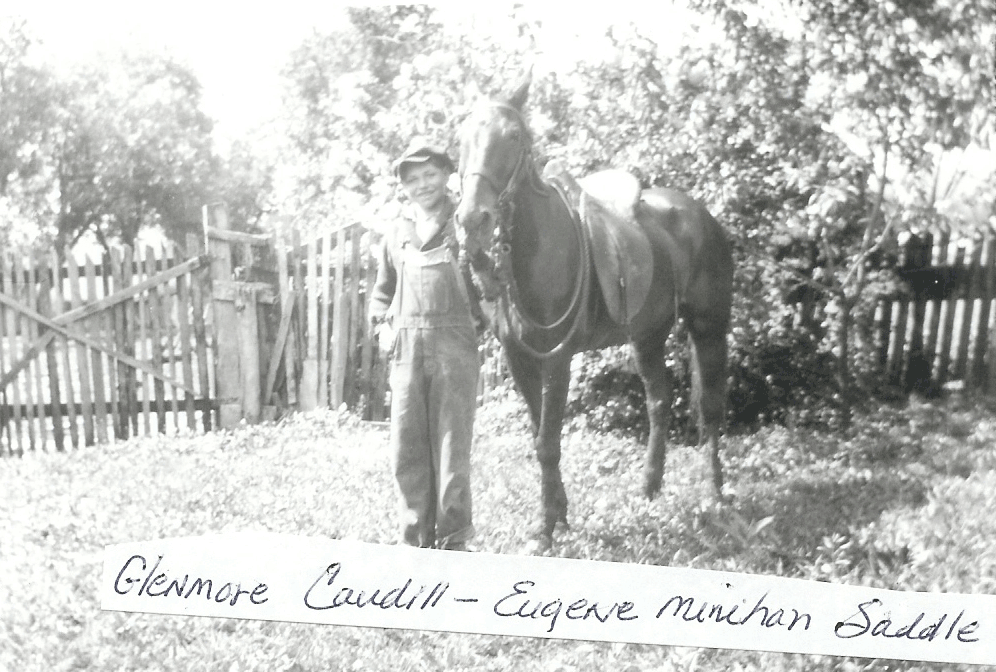 Glenmore Caudill - Eugene Minihan Saddle